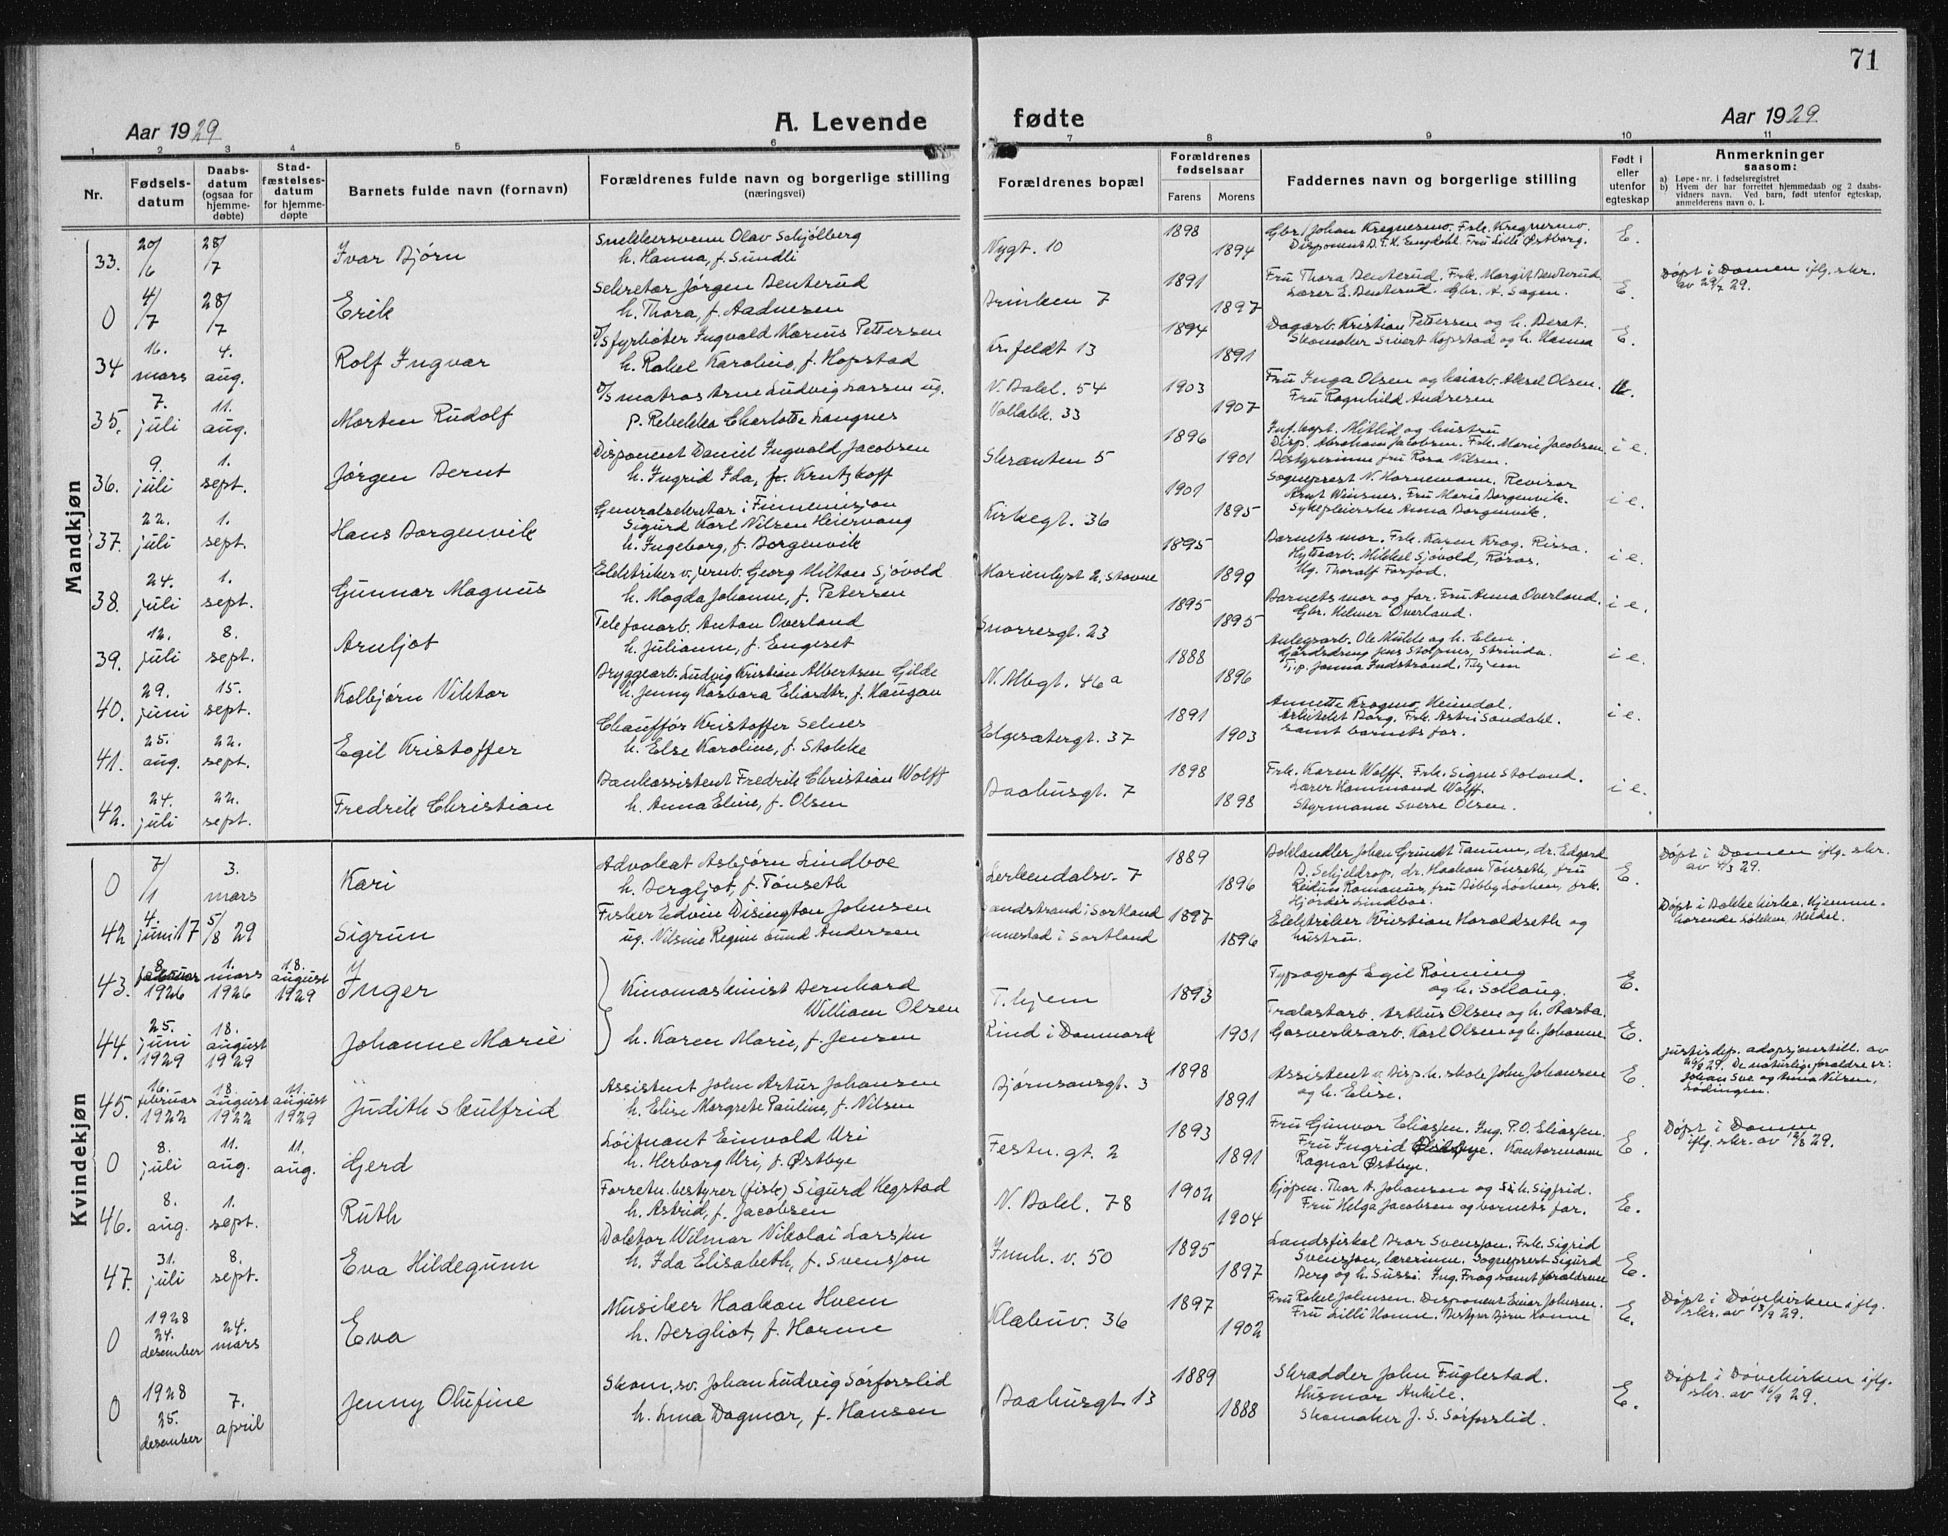 71
Aar 1929 A. Levende fødte Aar 1929
1 2 3 4 5 6 7 8 9 10 11
Nr. Fødsels-datum Daabs-datum (ogsaa for hjemme-døbte) Stad-fæstelses-datum for hjemme-døpte Barnets fulde navn (fornavn) Forældrenes fulde navn og borgerlige stilling (næringsvei) Forældrenes bopæl Forældrenes fødselsaar Farens Morens Faddernes navn og borgerlige stilling Født i eller utenfor egteskap Anmerkninger saasom:
a) Løpe-nr. i fødselsregistret
b) Hvem der har forrettet hjemmedaab og 2 daabs-vidners navn. Ved barn, født utenfor egteskap, anmelderens navn o. l.
Mandkjøn
33. 20/6 28/7 Ivar Bjørn Snekkersvenn Olav Schjølberg h. Hanna, f. Sundli Nygt. 10 1898 1894 E.
0 4/7 28/7 Erik Sekretær Jørgen Benterud h. Thora, f. Aadnesen Brinken 7 1891 1897 Fru Thora Benterud. Frk. Margit Benterud Lærer E. Benterud. Gbr. A. Sagen. E. Døpt i Domen iflg. skr. av 29/7 29.
34 16. mars 4. aug. Rolf Ingvar D/S fyrbøter Ingvald Marius Pettersen h. Rakel Karoline, f. Hopstad Kr. feldt 13 1894 1891 Dagarb. Kristian Pettersen og h. Berat. Skomaker Sivert Hopstad og h. Hanna E.
35. 7. juli 11. aug. Morten Rudolf D/S matros Arne Ludvig Larsen ug. p. Rebekka Charlotte Langnes N. Bakl. 54 Vollabk. 33 1903 1907 Fru Inga Olsen og havarb. Aksel Olsen. Fru Ragnhild Andresen U.
36. 9. juli 1. sept. Jørgen Bernt Disponent Daniel Ingvald Jacobsen h. Ingrid Ida, f. Krutzkoff Skrænten 5 1896 1901 Inf.kapt. Mitlid og hustru Disp. Abraham Jacobsen. Frk. Marie Jacobsen. Bestyrerinne fru Rosa Nilsen. i e.
37. 22. juli 1. sept. Hans Borgenvik Generalsekretær i Finnemisjon Sigurd Karl Nilsen Heiervang h. Ingeborg, f. Borgenvik Kirkegt. 36 1901 1895 Sogneprest N. Hornemann. Revisor Arnt Winsnes. Fru Maria Borgenvik. Sykepleierske Anna Borgenvik. i e.
38. 24. juli 1. sept. Gunnar Magnus Elektriker v. jernb. Georg Hilton Sjøvold h. Magda Johanne, f. Petersen Marienlyst 2, Stavne 1895 1899 Barnets mor. Frk. Karen Krog. Rissa. Hyttearb. Mikkel Sjøvold, Røros. Ug. Thoralf Forfod. i e.
39. 12. juli 8. sept. Arnljot Telefonarb. Anton Overland h. Julianne, f. Engeset Snorresgt. 23 1895 1895 Barnets mor og far. Fru Anna Overland. Gbr. Helmer Overland. i e.
40. 29. juni 15. sept. Kolbjørn Viktor Bryggearb. Ludvig Kristian Albertsen Gilde h. Jenny Barbara Eliasdtr. f. Haugan N. Albgt. 46a 1888 1896 Anlegsarb. Ole Mukle og h. Elen. Gårdsdreng Jens Stolpnes, Strinda. Tj.p. Janna Indstrand. T.hjem i e.
41. 25. aug. 22. sept. Egil Kristoffer Chauffør Kristoffer Selnes h. Else Karoline, f. Stokke Edgesætergt. 37 1891 1903 Annette Krogmo, Heimdal. Arkitekt Borg. Frk. Astri Sandahl. samt barnets far. i e.
42. 24. juli 22. sept. Fredrik Christian Bankassistent Fredrik Christian Wolff h. Anna Eline, f. Olsen Baahusgt. 7 1898 1898 Frk. Karen Wolff. Frk. Signe Stoland. Lærer Hammond Wolff. Styrmann Sverre Olsen. i e.
Kvindekjøn
0 7/1 3. mars Kari Advokat Asbjørn Lindboe h. Bergljot, f. Tønseth Lerkendalsv. 7 1889 1896 Boklandler Johan Grundt Tanum, dr. Edgard B. Schjeldrop, dr. Haakon Tønseth, fru Reidun Romanus, fru Bibby Lochen, frk. Hjørdis Lindboe. E. Døpt i Domen iflg. skr. av 4/3 29.
42 4. juni 17 5/8 29 Sigrun Fisker Edvin Disington Johnsen ug. Nilsine Regine Lund Andersen Sandstrand i Sortland Jennestad i Sortland 1897 1896 Elektriker Kristian Haraldseth og hustru. Døpt i Bakke kirke. Hjemme-hørende Løkken, Meldal.
43. 8. februar 1926 1. mars 1926 18. august 1929 Inger Kinomaskinist Bernhard William Olsen T.hjem 1893 Typograf Egil Rønning og h. Solaug. E.
44. 25. juni 1929 18. august 1929 Johanne Marie h. Karen Marie, f. Jensen Rind i Danmark 1901 Trælastarb. Arthur Olsen og h. Aasta. Gasverksarb. Karl Olsen og h. Johanne E.
45. 16. februar 1922 18. august 1922 11. august 1929 Judith Skulfrid Assistent John Artur Johansen h. Elise Margrete Pauline, f. Nilsen Bjørnsonsgt. 3 1898 1891 Assistent v. Disp.h. skole John Johansen og h. Elise. E. Justisdep. adopsjonstill. av 26/8 29. De naturlige foreldre er: Johan Sve og Anna Nilsen,
0 8. juli 11. aug. 11. aug. Gjerd Løitnant Einvald Uri h. Herborg Uri, f. Østbye Festn. gt. 2 1893 1891 Fru Gunvor Eliassen. Ing. P.O. Eliassen. Fru Ingrid Østbye. Kontormann Ragnar Østbye. E. Døpt i Domen iflg. skr. av 12/8 29.
46. 8. aug. 1. sept. Ruth Forretn. bestyrer (fisk) Sigurd Hegstad h. Astrid, f. Jacobsen N. Bakl. 78 1902 1904 Kjøpm. Thor A. Johansen og h. Sigfrid. Fru Helga Jacobsen og barnets far. E.
47. 31. juli 8. sept. Eva Hildegunn Doktor Wilmar Nikolai Larssen h. Ida Elisabeth, f. Svensson Innh. v. 50 1895 1897 Landsfiskal Bror Svensson. Frk. Sigrid Svensson, lærerinne. Sogneprest Sigurd Berg og h. Sussi. Ing. Frog samt foreldrene E.
0 1928 24. desember 24. mars Eva Musiker Haakon Hvem h. Bergliot, f. Horme Klæbuv. 36 1897 1902 Fru Rakel Johnsen. Disponent Einar Johnsen. Fru Lilli Homme. Bestyrer Bjørn Homme E. Døpt i Døvekirken iflg. skr. av 13/9 29.
0 1928 25. desember 7. april Jenny Olufine Skom.sv. Johan Ludvig Sørforslid h. Anna Dagmar, f. Hansen Baahusgt. 13 1889 1888 Skrædder John Fuglestad. Husmor Ankile. Skomaker J. S. Sørforslid. E. Døpt i Døvekirken iflg. skr. av 16/9 29.